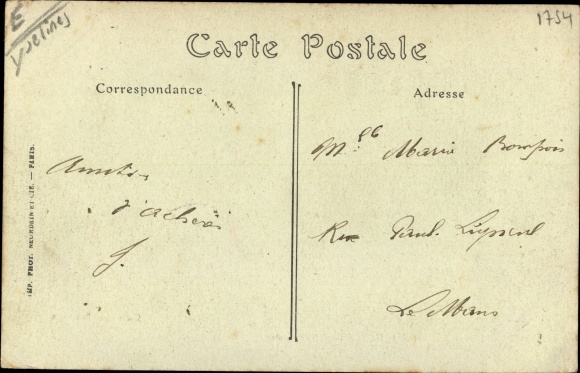 E
Yvelines
1754
Carte Postale
Correspondance
Adresse
IMP. PHOT. NEURDEIN ET CIE. — PARIS.
Amitiés
d'achères
J.
Mlle Marie
Rue Paul
Le Mans